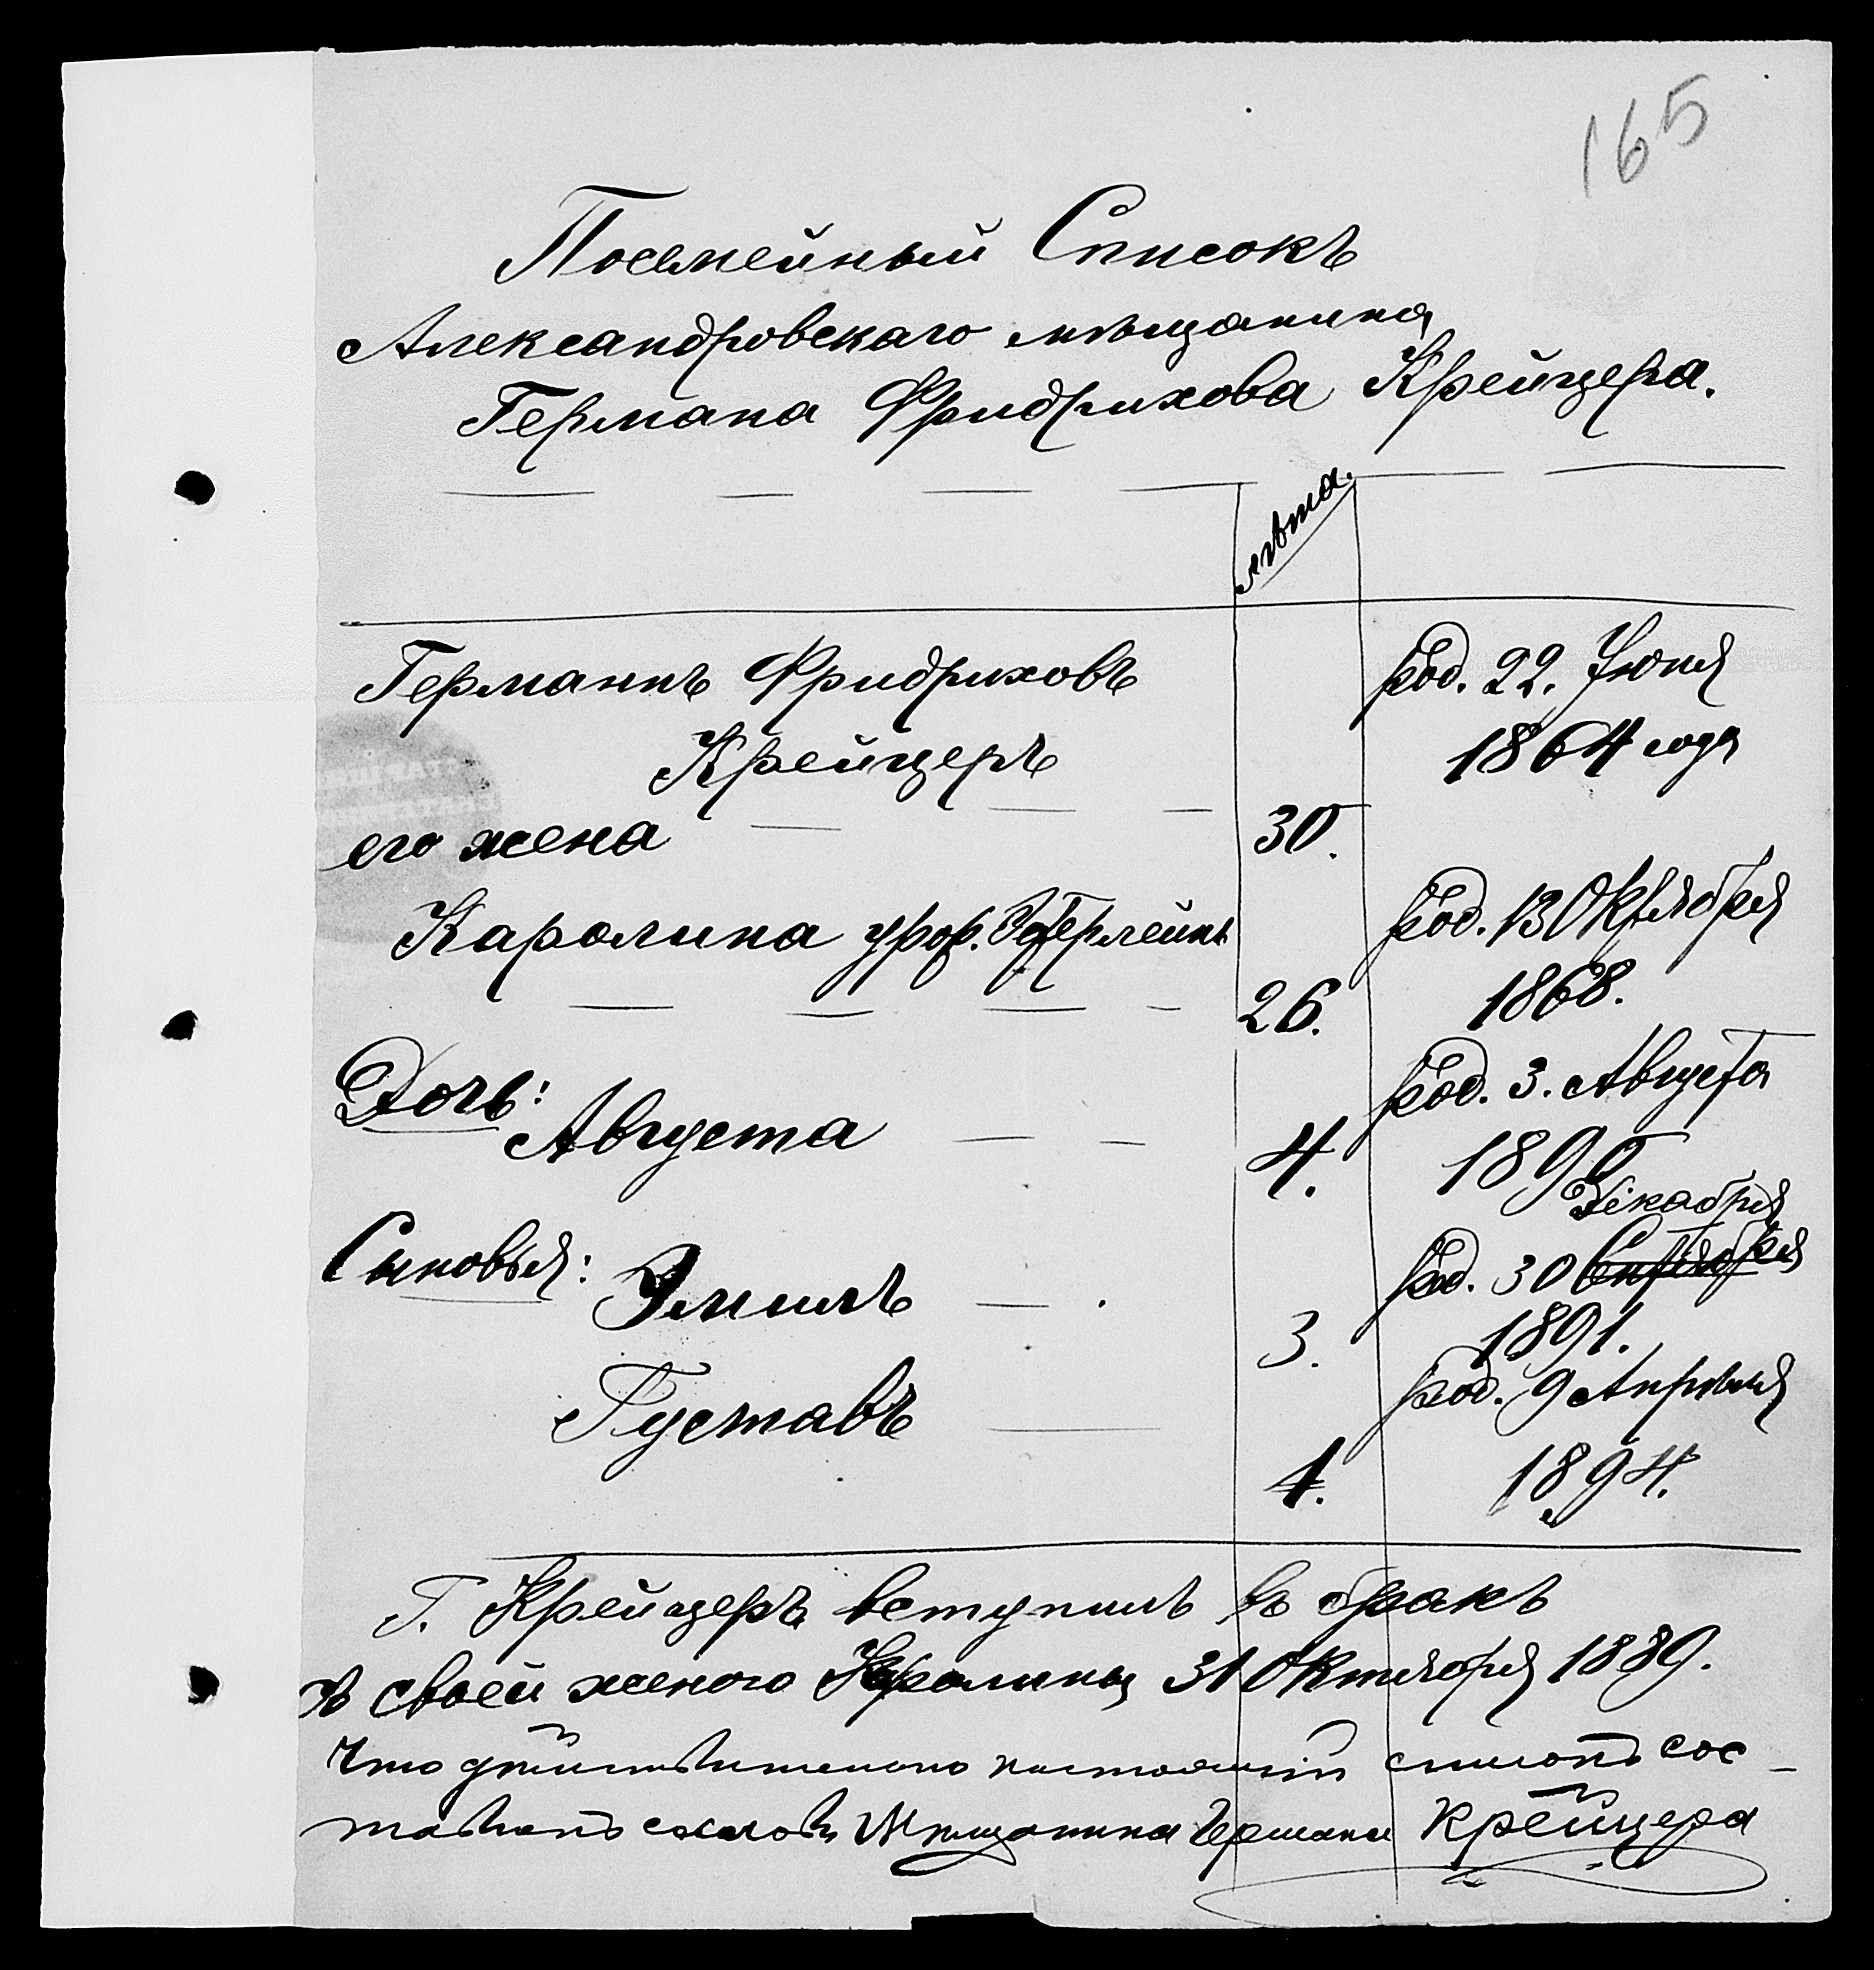 165
Посемейный Списокъ
Александровскаго мѣщанина
Германа Фридрихова Крейцера.
лѣта.
Германъ Фридриховъ
Крейцеръ
30.
род. 22. Іюня
1864 года
его жена
Каролина урож.
26.
род. 13 Октября
1868.
Дочь:
Августа
4.
род. 3. Августа
1890
Сыновья:
Эмиль
3.
Декабря
род. 30 Сентября
1891.
Густавъ
1.
род. 9 Апрѣля
1894.
Г. Крейцеръ вступилъ въ бракъ
съ своей женою Каролины 31 Октября 1889.
Что дѣйствительно настоящій списокъ сос-
тавленъ со словъ Мѣщанина Германа Крейцера